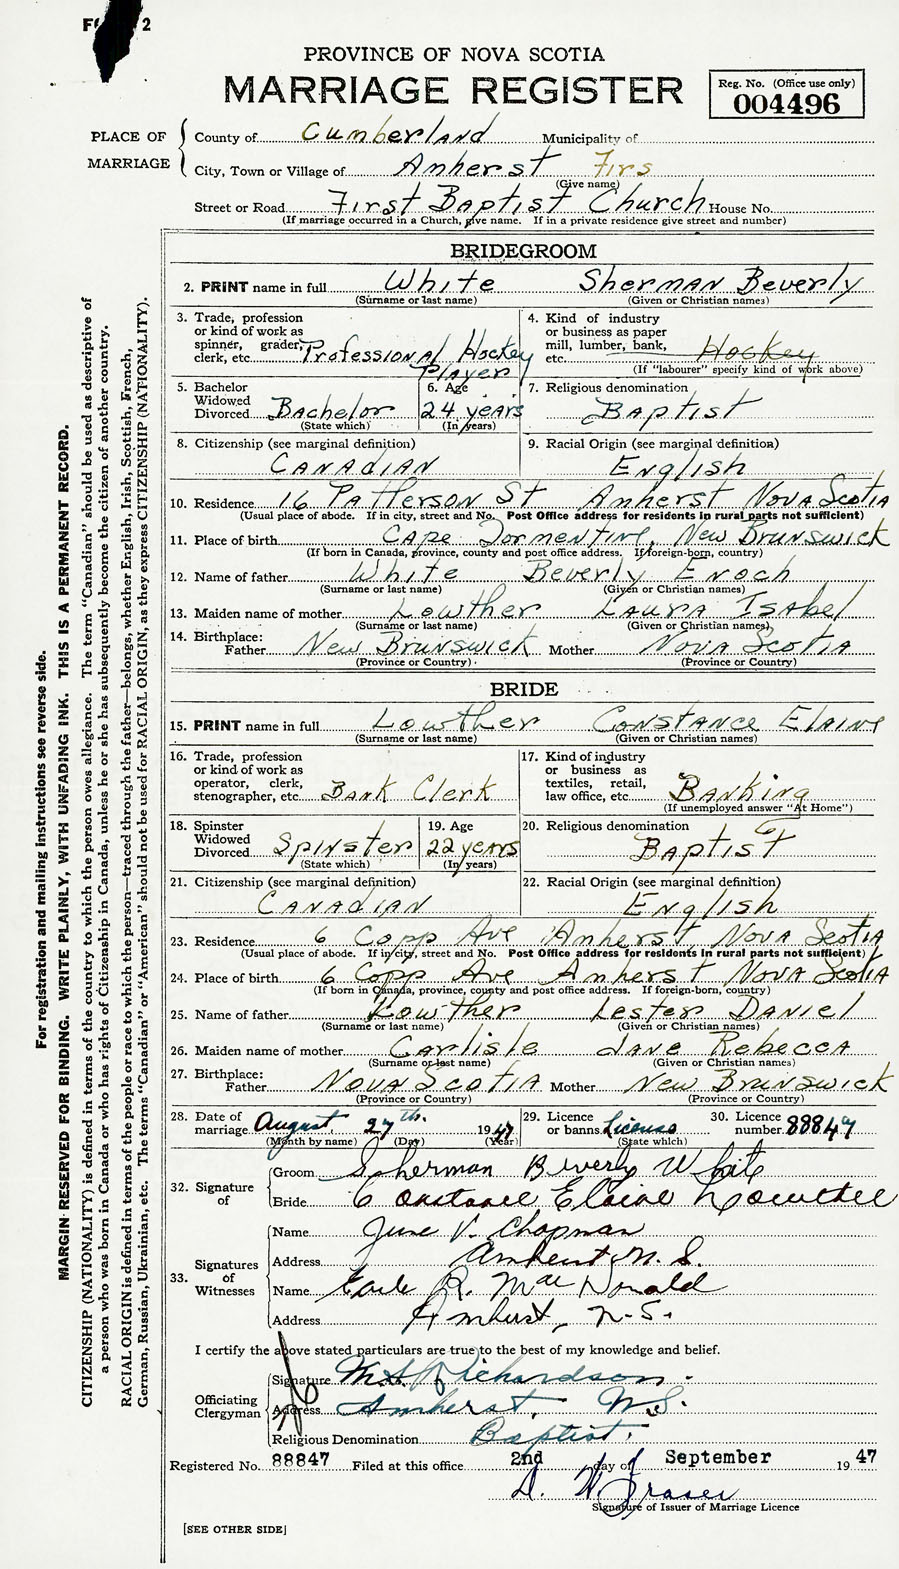 PROVINCE OF NOVA SCOTIA
MARRIAGE REGISTER
Reg. No. (Office use only)
004496
PLACE OF MARRIAGE
County of Cumberland Municipality of
City, Town or Village of Amherst Firs
(Give name)
Street or Road First Baptist Church House No.
(If marriage occurred in a Church, give name. If in a private residence give street and number)
BRIDEGROOM
2. PRINT name in full White Sherman Beverly
(Surname or last name) (Given or Christian names)
3. Trade, profession or kind of work as spinner, grader, clerk, etc. Professional Hockey Player
4. Kind of industry or business as paper mill, lumber, bank, etc. Hockey
(If "labourer" specify kind of work above)
5. Bachelor Widowed Divorced Bachelor
(State which)
6. Age 24 years
(In years)
7. Religious denomination Baptist
8. Citizenship (see marginal definition) CANADIAN
9. Racial Origin (see marginal definition) English
10. Residence 16 Patterson St Amherst Nova Scotia
(Usual place of abode. If in city, street and No. Post Office address for residents in rural parts not sufficient)
11. Place of birth Cape Tormentine, New Brunswick
(If born in Canada, province, county and post office address. If foreign-born, country)
12. Name of father White Beverly Enoch
(Surname or last name) (Given or Christian names)
13. Maiden name of mother Lowther Laura Isabel
(Surname or last name) (Given or Christian names)
14. Birthplace:
Father New Brunswick Mother Nova Scotia
(Province or Country) (Province or Country)
BRIDE
15. PRINT name in full Lowther Constance Elaine
(Surname or last name) (Given or Christian names)
16. Trade, profession or kind of work as operator, clerk, stenographer, etc. Bank Clerk
17. Kind of industry or business as textiles, retail, law office, etc. Banking
(If unemployed answer "At Home")
18. Spinster Widowed Divorced Spinster
(State which)
19. Age 22 years
(In years)
20. Religious denomination Baptist
21. Citizenship (see marginal definition) CANADIAN
22. Racial Origin (see marginal definition) English
23. Residence 6 Copp Ave Amherst, Nova Scotia
(Usual place of abode. If in city, street and No. Post Office address for residents in rural parts not sufficient)
24. Place of birth 6 Copp Ave Amherst Nova Scotia
(If born in Canada, province, county and post office address. If foreign-born, country)
25. Name of father Lowther Lester Daniel
(Surname or last name) (Given or Christian names)
26. Maiden name of mother Carlisle Jane Rebecca
(Surname or last name) (Given or Christian names)
27. Birthplace:
Father Nova Scotia Mother New Brunswick
(Province or Country) (Province or Country)
28. Date of marriage August 27th. 1947
(Month by name) (Day) (Year)
29. Licence or banns License
(State which)
30. Licence number 88847
32. Signature of
Groom Sherman Beverly White
Bride Constance Elaine Lowther
33. Signatures of Witnesses
Name June V. Chapman
Address Amherst N. S.
Name Earle R. MacDonald
Address Amherst, N.S.
I certify the above stated particulars are true to the best of my knowledge and belief.
Officiating Clergyman
Signature Richardson
Address Amherst, N.S.
Religious Denomination Baptist.
Registered No. 88847 Filed at this office 2nd day of September 1947
D. W. Fraser
Signature of Issuer of Marriage Licence
[SEE OTHER SIDE]
For registration and mailing instructions see reverse side.
MARGIN RESERVED FOR BINDING. WRITE PLAINLY, WITH UNFADING INK. THIS IS A PERMANENT RECORD.
CITIZENSHIP (NATIONALITY) is defined in terms of the country to which the person owes allegiance. The term "Canadian" should be used as descriptive of
a person who was born in Canada or who has rights of Citizenship in Canada, unless he or she has subsequently become the citizen of another country.
RACIAL ORIGIN is defined in terms of the people or race to which the person—traced through the father—belongs, whether English, Irish, Scottish, French,
German, Russian, Ukrainian, etc. The terms "Canadian" or "American" should not be used for RACIAL ORIGIN, as they express CITIZENSHIP (NATIONALITY).